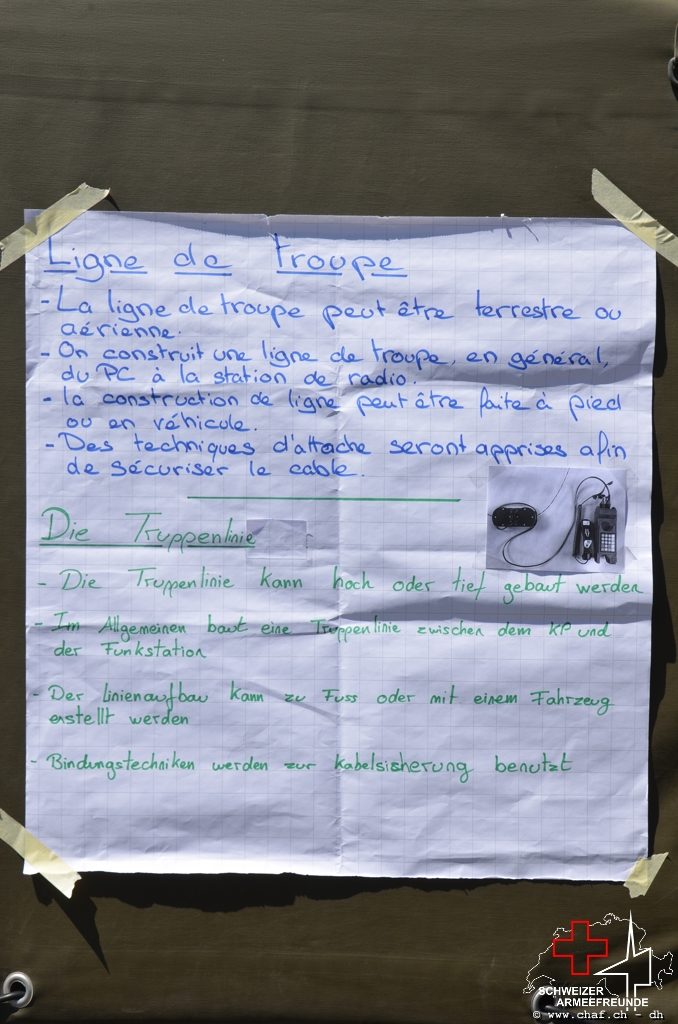 Ligne de troupe
- La ligne de troupe peut être terrestre ou
aérienne.
- On construit une ligne de troupe, en général,
du PC à la station de radio.
- la construction de ligne peut être faite à pied
ou en véhicule.
- Des techniques d'attache seront apprises afin
de sécuriser le cable.
Die Truppenlinie
- Die Truppenlinie kann hoch oder tief gebaut werden
- Im Allgemeinen baut eine Truppenlinie zwischen dem KP und
der Funkstation
- Der Linienaufbau kann zu Fuss oder mit einem Fahrzeug
erstellt werden
- Bindungstechniken werden zur Kabelsisherung benutzt
SCHWEIZER
ARMEEFREUNDE
© www.chaf.ch - dh